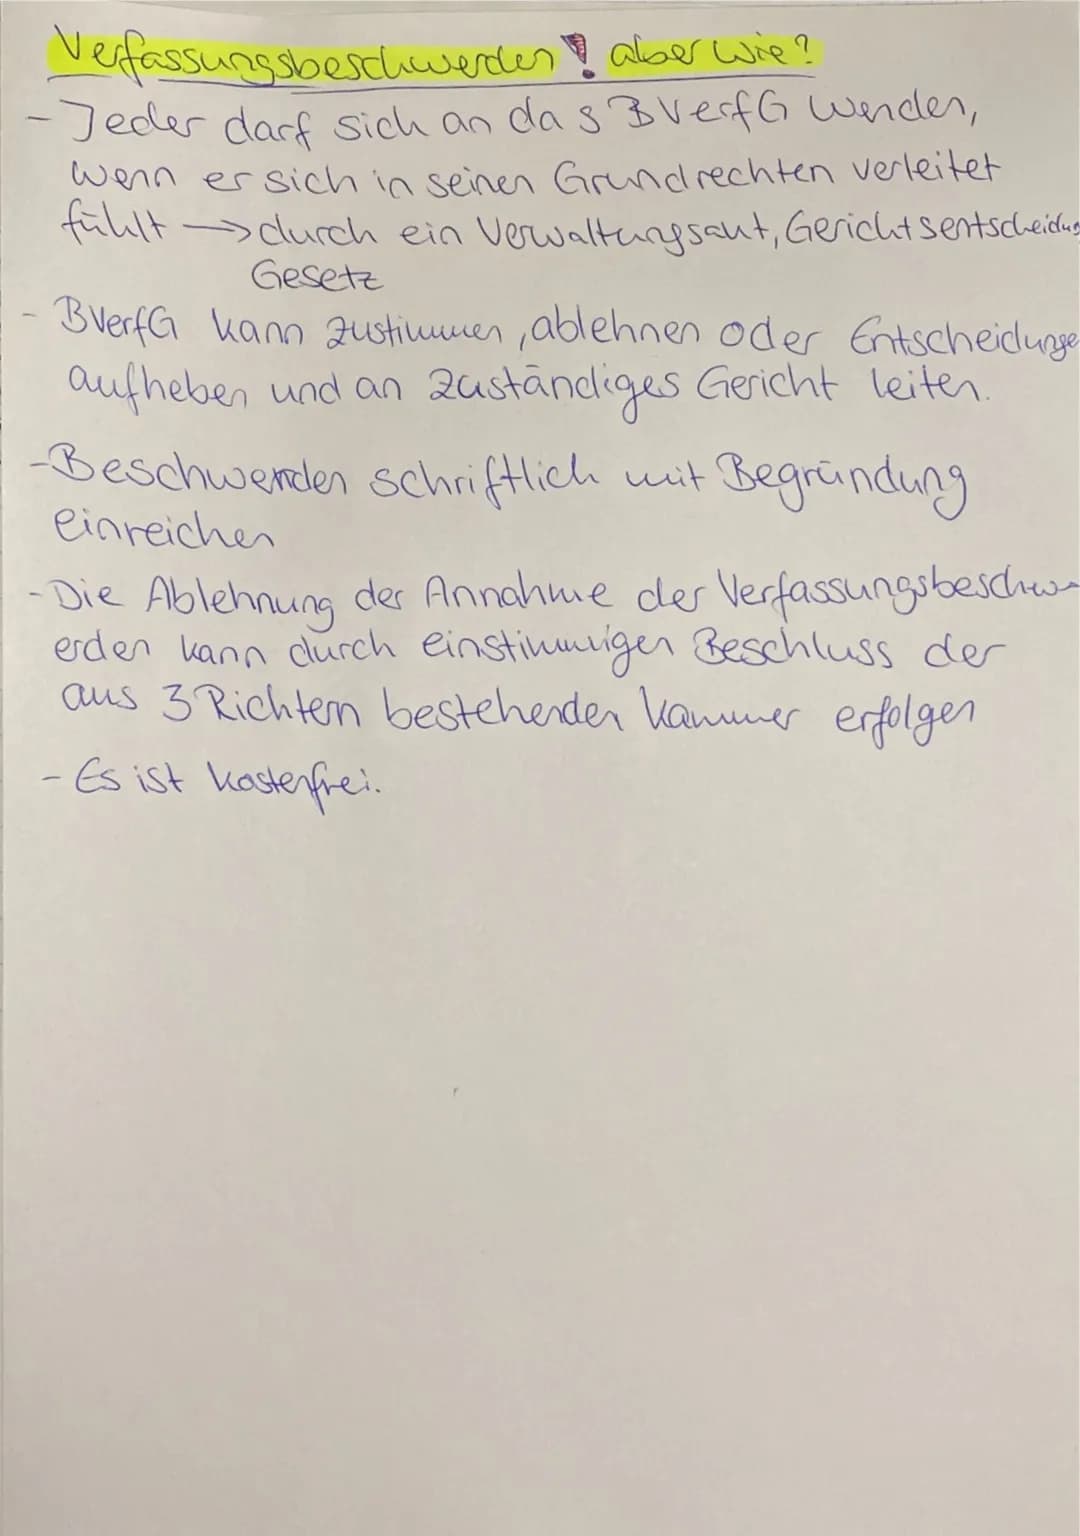 Verfassungsbeschwerden ! aber wie?
- Jeder darf sich an das BVerfG wenden,
wenn er sich in seinen Grundrechten verleitet
fühlt → durch ein Verwaltungsaut, Gerichtsentscheidung
Gesetz
- BVerfG kann zustimmen, ablehnen oder Entscheidunge
aufheben und an zuständiges Gericht leiten.
- Beschwerden schriftlich mit Begründung
einreichen
- Die Ablehnung der Annahme der Verfassungsbeschw-
erden kann durch einstimmigen Beschluss der
aus 3 Richtern bestehenden Kammer erfolgen
- Es ist kostenfrei.